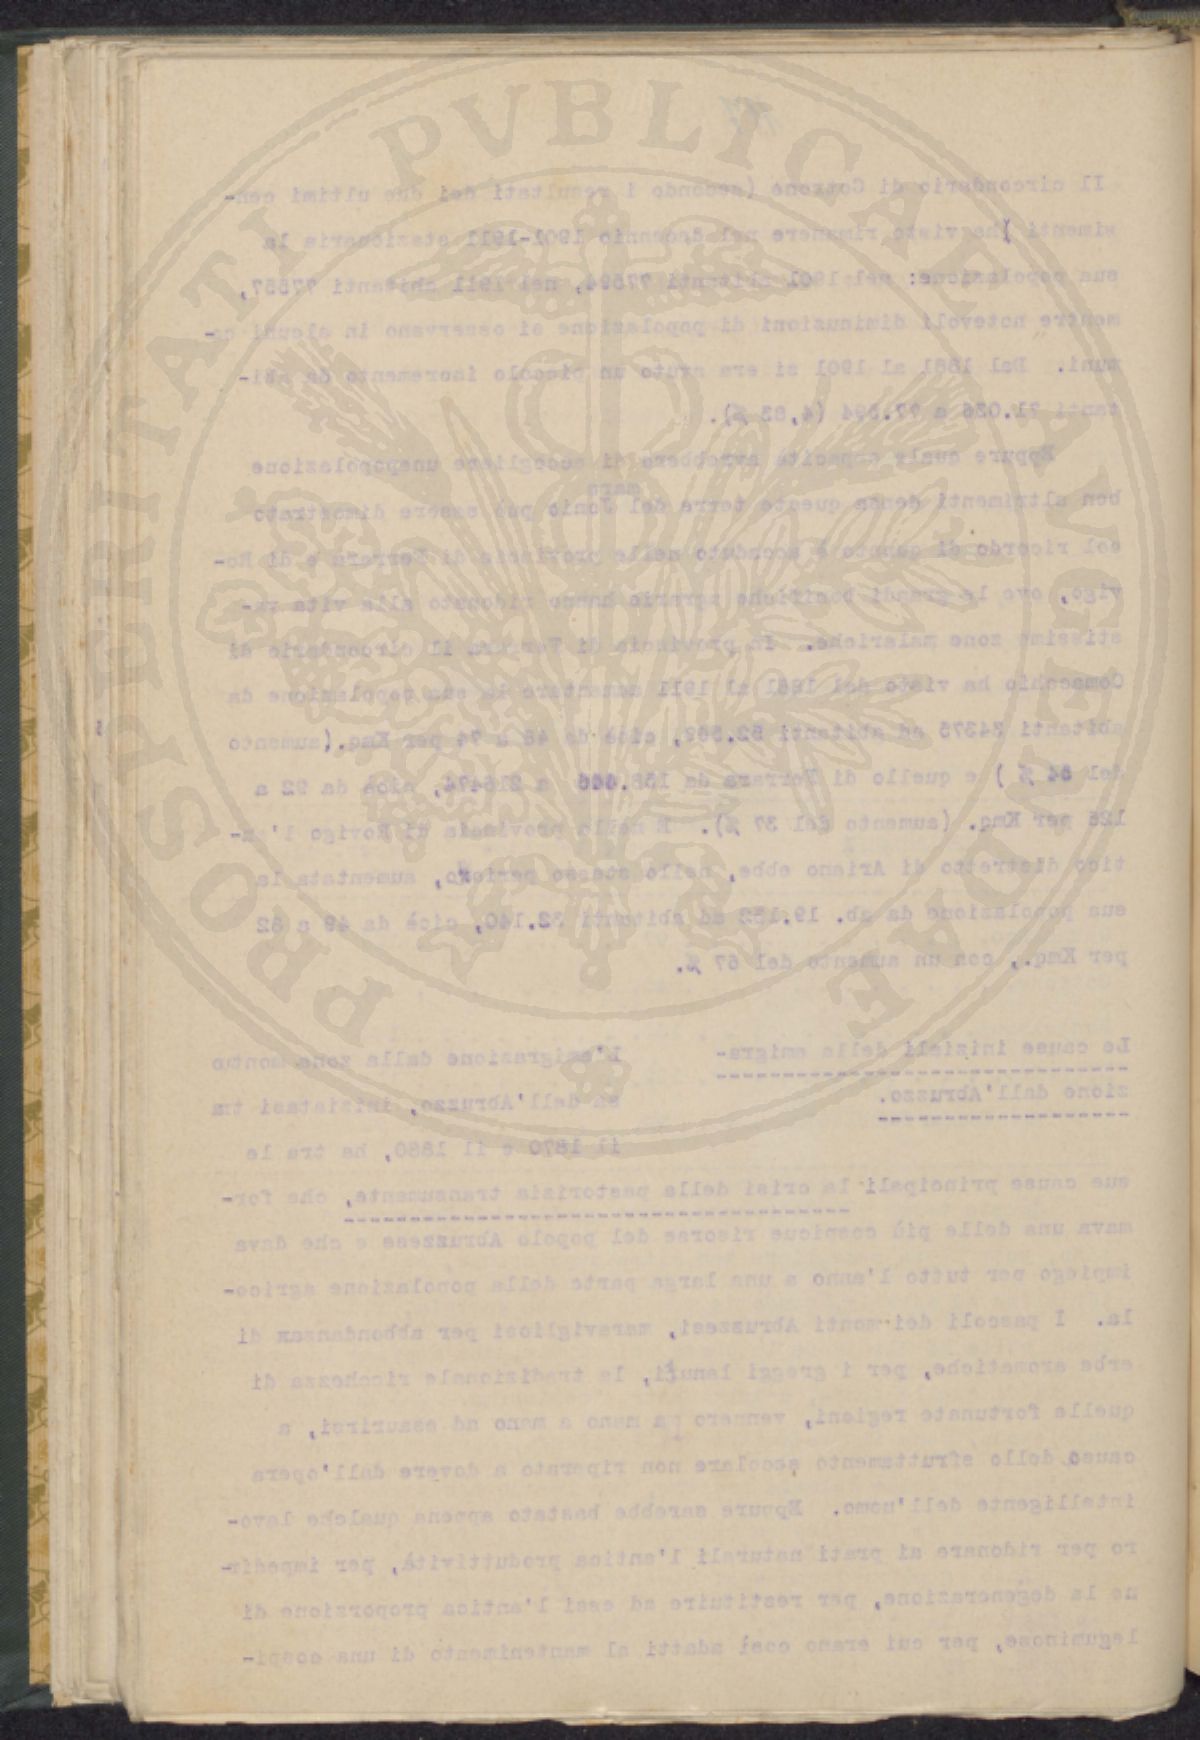 PROSPERITATI PVBLICAE AVGENDAE
Il circondario di Cotrone (secondo i resultati dei due ultimi cen-
simenti) ha visto rimanere nel decennio 1901-1911 stazionaria la
sua popolazione: nel 1901 abitanti 77594, nel 1911 abitanti 77557,
mentre notevoli diminuzioni di popolazione si osservano in alcuni co-
muni. Dal 1881 al 1901 si era avuto un piccolo incremento da abi-
tanti 71.036 a 77.594 (4,83 %).
Eppure quale capacità avrebbero di accogliere una popolazione
mare
ben altrimenti densa queste terre del Jonio può essere dimostrato
col ricordo di quanto è accaduto nelle provincie di Ferrara e di Ro-
vigo, ove le grandi bonifiche agrarie hanno ridonato alla vita va-
stissime zone malariche. In provincia di Ferrara il circondario di
Comacchio ha visto dal 1881 al 1911 aumentare la sua popolazione da
abitanti 34375 ad abitanti 52.567, cioè da 48 a 74 per Kmq. (aumento
del 54 %) e quello di Ferrara da 158.  a 216474, cioè da 92 a
126 per Kmq. (aumento del 37 %). E nella provincia di Rovigo l'an-
tico distretto di Ariano ebbe, nello stesso periodo, aumentata la
sua popolazione da ab. 19.152 ad abitanti 32.140, cioè da 49 a 82
per Kmq., con un aumento del 67 %.
Le cause iniziali della emigra-
zione dall'Abruzzo.
L'emigrazione dalla zona montuo
sa dell'Abruzzo, iniziatasi tra
il 1870 e il 1880, ha tra le
sue cause principali la crisi della pastorizia transumante, che for-
mava una delle più cospicue risorse del popolo Abruzzese e che dava
impiego per tutto l'anno a una larga parte della popolazione agrico-
la. I pascoli dei monti Abruzzesi, maravigliosi per abbondanza di
erbe aromatiche, per i greggi lanuti, la tradizionale ricchezza di
quelle fortunate regioni, vennero a mano a mano ad esaurirsi, a
causa dello sfruttamento secolare non riparato a dovere dall'opera
intelligente dell'uomo. Eppure sarebbe bastato appena qualche lavo-
ro per ridonare ai prati naturali l'antica produttività, per impedir-
ne la degenerazione, per restituire ad essi l'antica proporzione di
leguminose, per cui erano così adatti al mantenimento di una cospi-